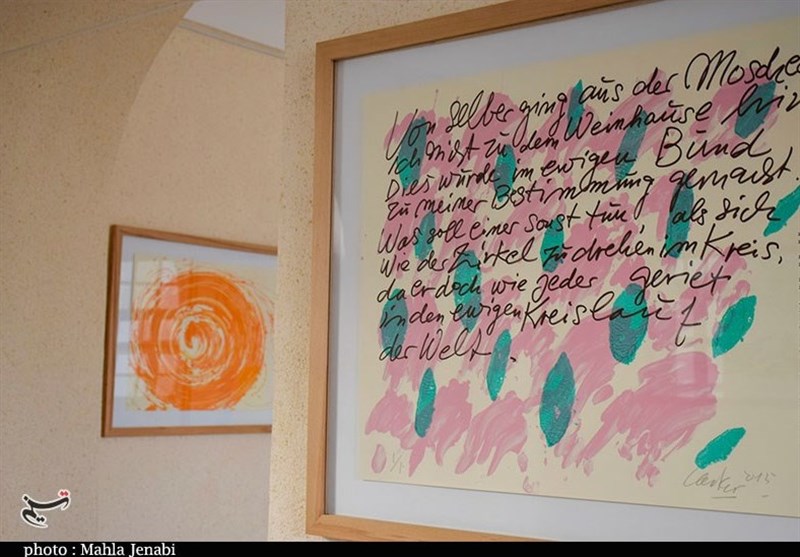 Von selber ging aus der Moschee
Ich nicht zu dem Weinhause hin
Dies wurde im ewigen Bund
Zu meiner Bestimmung gemacht.
Was soll einer sonst tun als sich
Wie der Zirkel zu drehen im Kreis,
da er doch wie jeder geriet
in den ewigen Kreislauf
der Welt.
Uecker '2015
تسنیم
photo : Mahla Jenabi